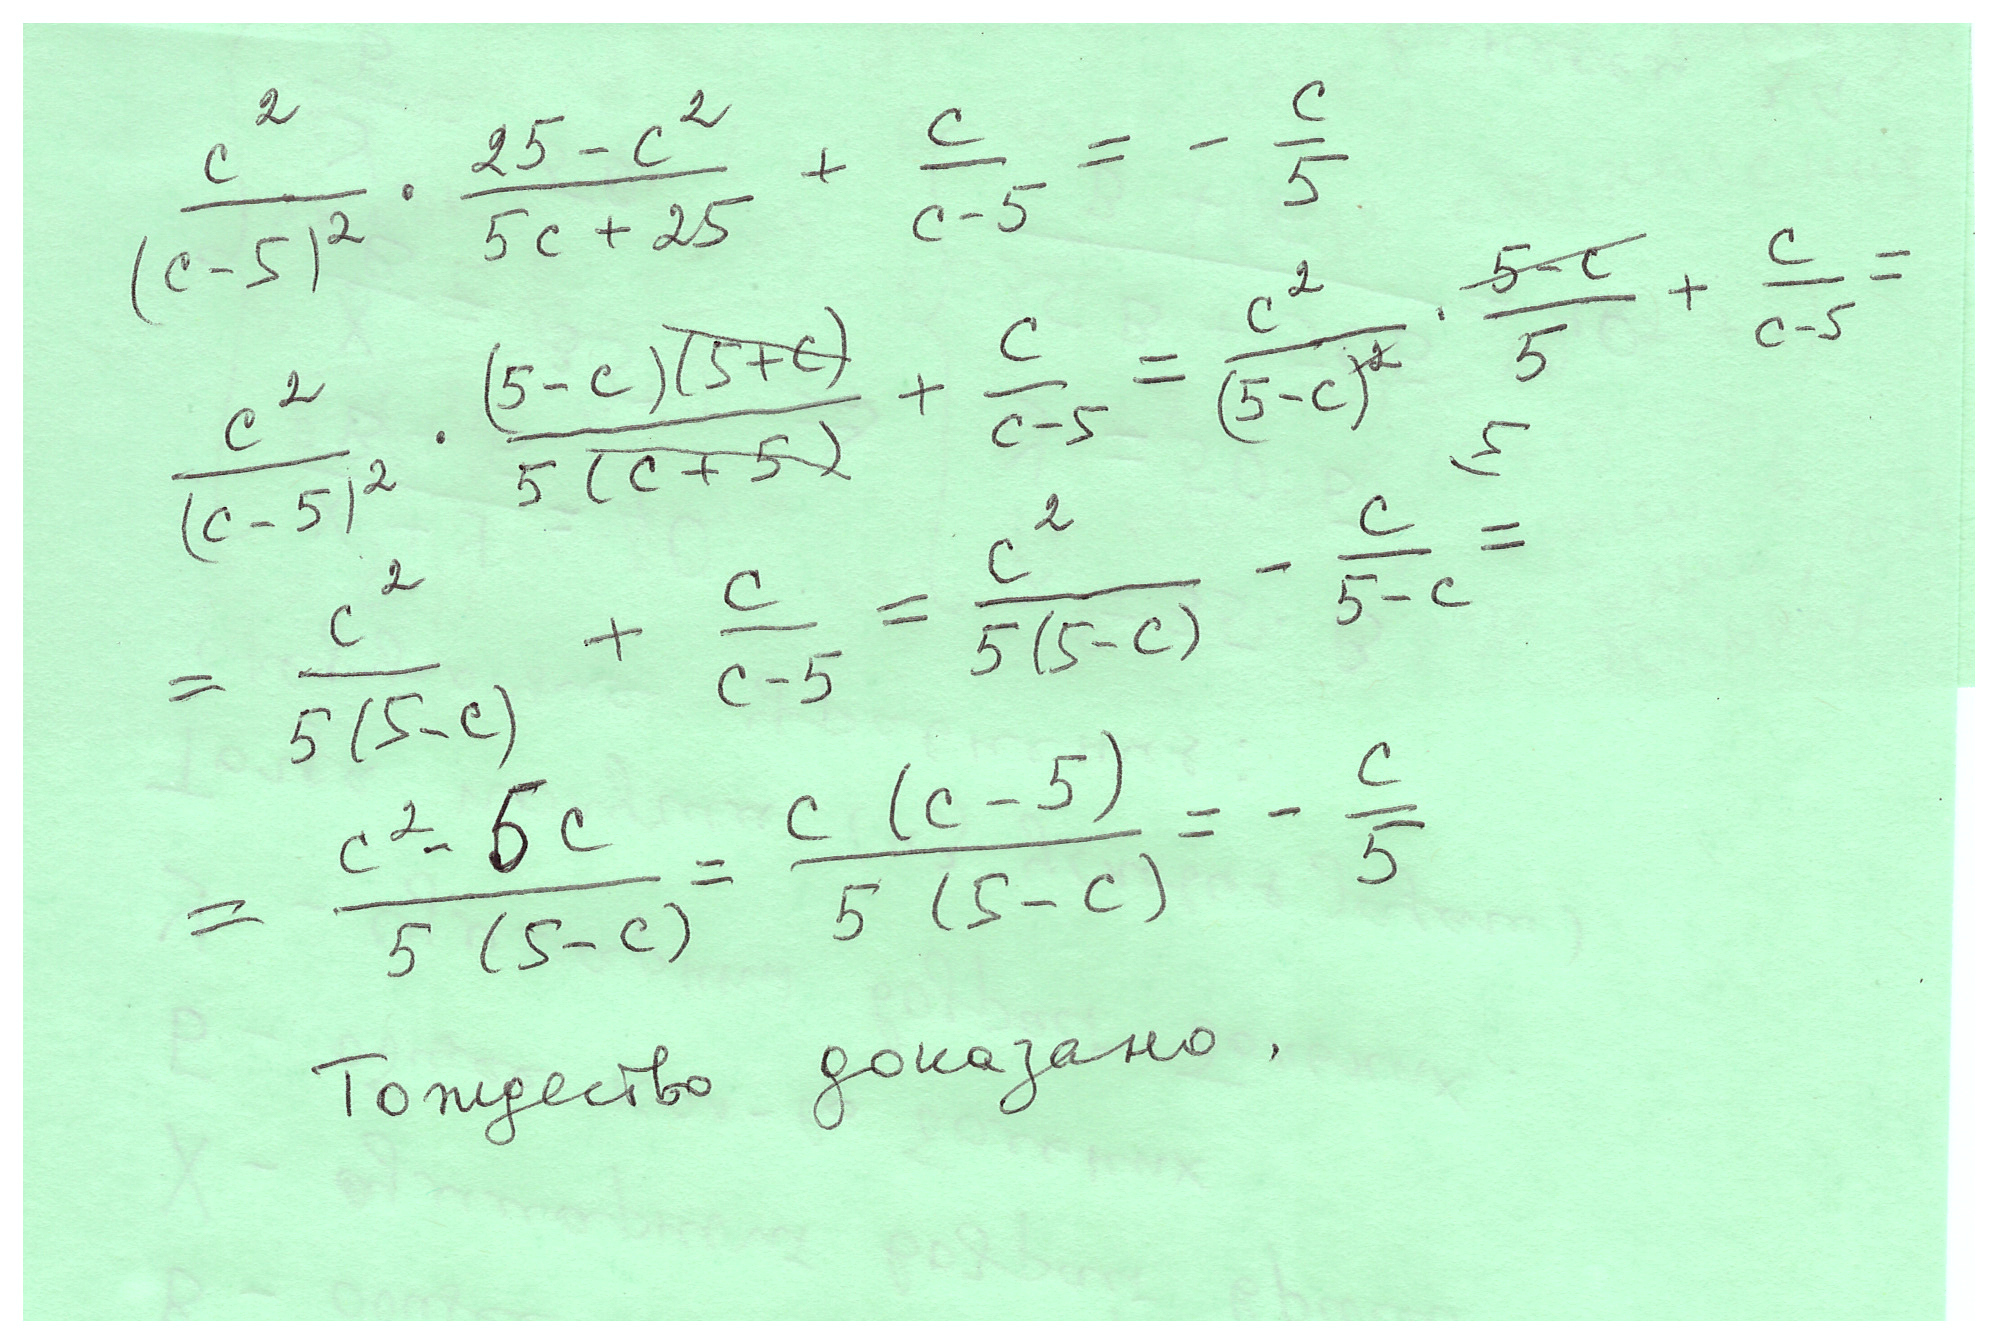 c²/(c-5)² · (25-c²)/(5c+25) + c/(c-5) = - c/5
c²/(c-5)² · (5-c)(5+c)/5(c+5) + c/(c-5) = c²/(5-c)² · (5-c)/5 + c/(c-5) =
5
= c²/5(5-c) + c/(c-5) = c²/5(5-c) - c/(5-c) =
= (c²-5c)/5(5-c) = c(c-5)/5(5-c) = - c/5
Тождество доказано.